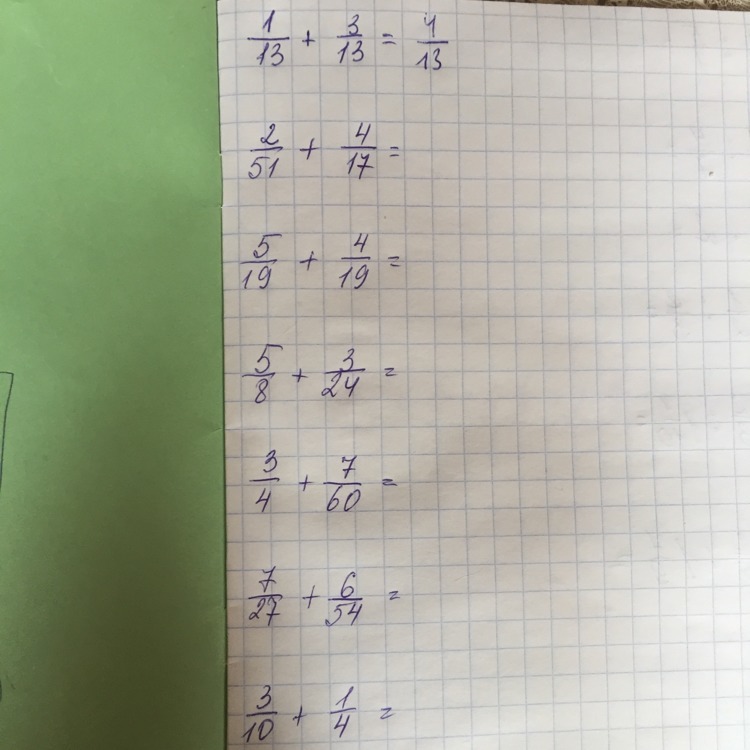 1/13 + 3/13 = 4/13
2/51 + 4/17 =
5/19 + 4/19 =
5/8 + 3/24 =
3/4 + 7/60 =
7/27 + 6/54 =
3/10 + 1/4 =